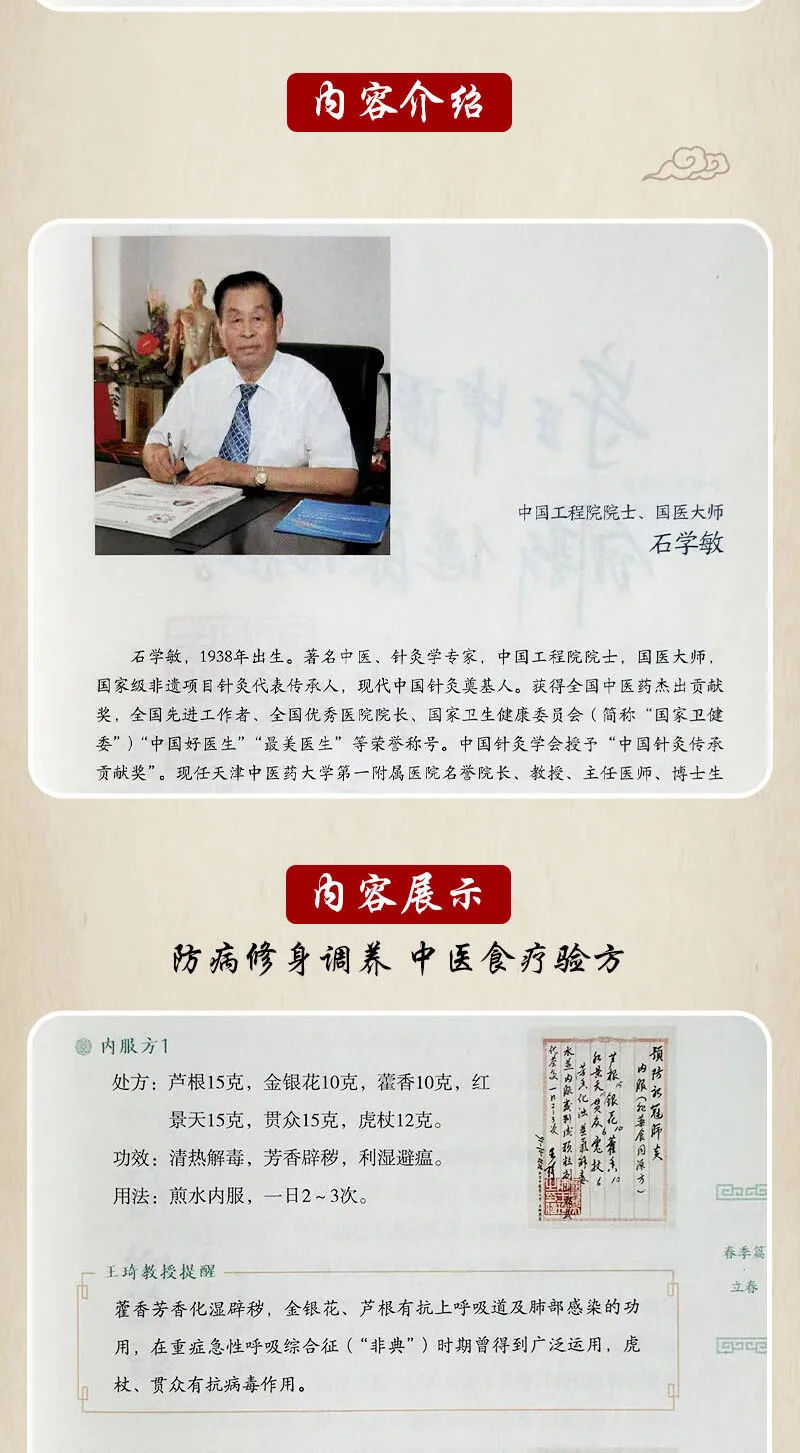 内容介绍
中国工程院院士、国医大师
石学敏
石学敏，1938年出生。著名中医、针灸学专家，中国工程院院士，国医大师，
国家级非遗项目针灸代表传承人，现代中国针灸奠基人。获得全国中医药杰出贡献
奖，全国先进工作者、全国优秀医院院长、国家卫生健康委员会（简称“国家卫健
委”）“中国好医生”“最美医生”等荣誉称号。中国针灸学会授予“中国针灸传承
贡献奖”。现任天津中医药大学第一附属医院名誉院长、教授、主任医师、博士生
内容展示
防病修身调养 中医食疗验方
内服方1
处方：芦根15克，金银花10克，藿香10克，红
景天15克，贯众15克，虎杖12克。
功效：清热解毒，芳香辟秽，利湿避瘟。
用法：煎水内服，一日2～3次。
预防新冠肺炎
内服（
芦根15 银花10 藿香10
红景天
芳香化浊
春季篇
·
立春
王琦教授提醒
藿香芳香化湿辟秽，金银花、芦根有抗上呼吸道及肺部感染的功
用，在重症急性呼吸综合征（“非典”）时期曾得到广泛运用，虎
杖、贯众有抗病毒作用。